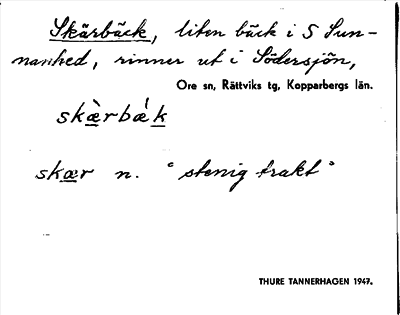 Skärbäck, liten bäck i S Sun-
nanhed, rinner ut i Södersjön,
Ore sn, Rättviks tg, Kopparbergs län.
skæ̀rbǽk
skær n. "stenig trakt"
THURE TANNERHAGEN 1947.